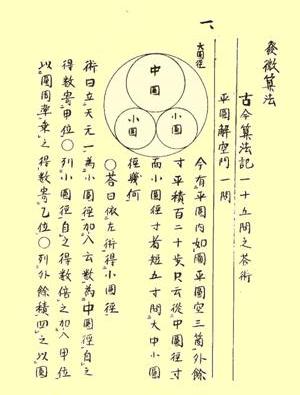 發微算法
古今算法記一十五問之答術
平圓解空門 問
一
大圓徑
中圓
小圓
小圓
今有平圓内如圖平圓空三箇外餘
寸平積百二十歩只云從中圓徑寸
而小圓徑寸者短五寸問大中小圓
徑幾何
○答曰依左術得小圓徑
術曰立天元一為小圓徑加入云數為中圓徑自之
得數寄甲位○列小圓徑自之得數倍之加入甲位
以圓周率乗之得數寄乙位○列外餘積四之以圓